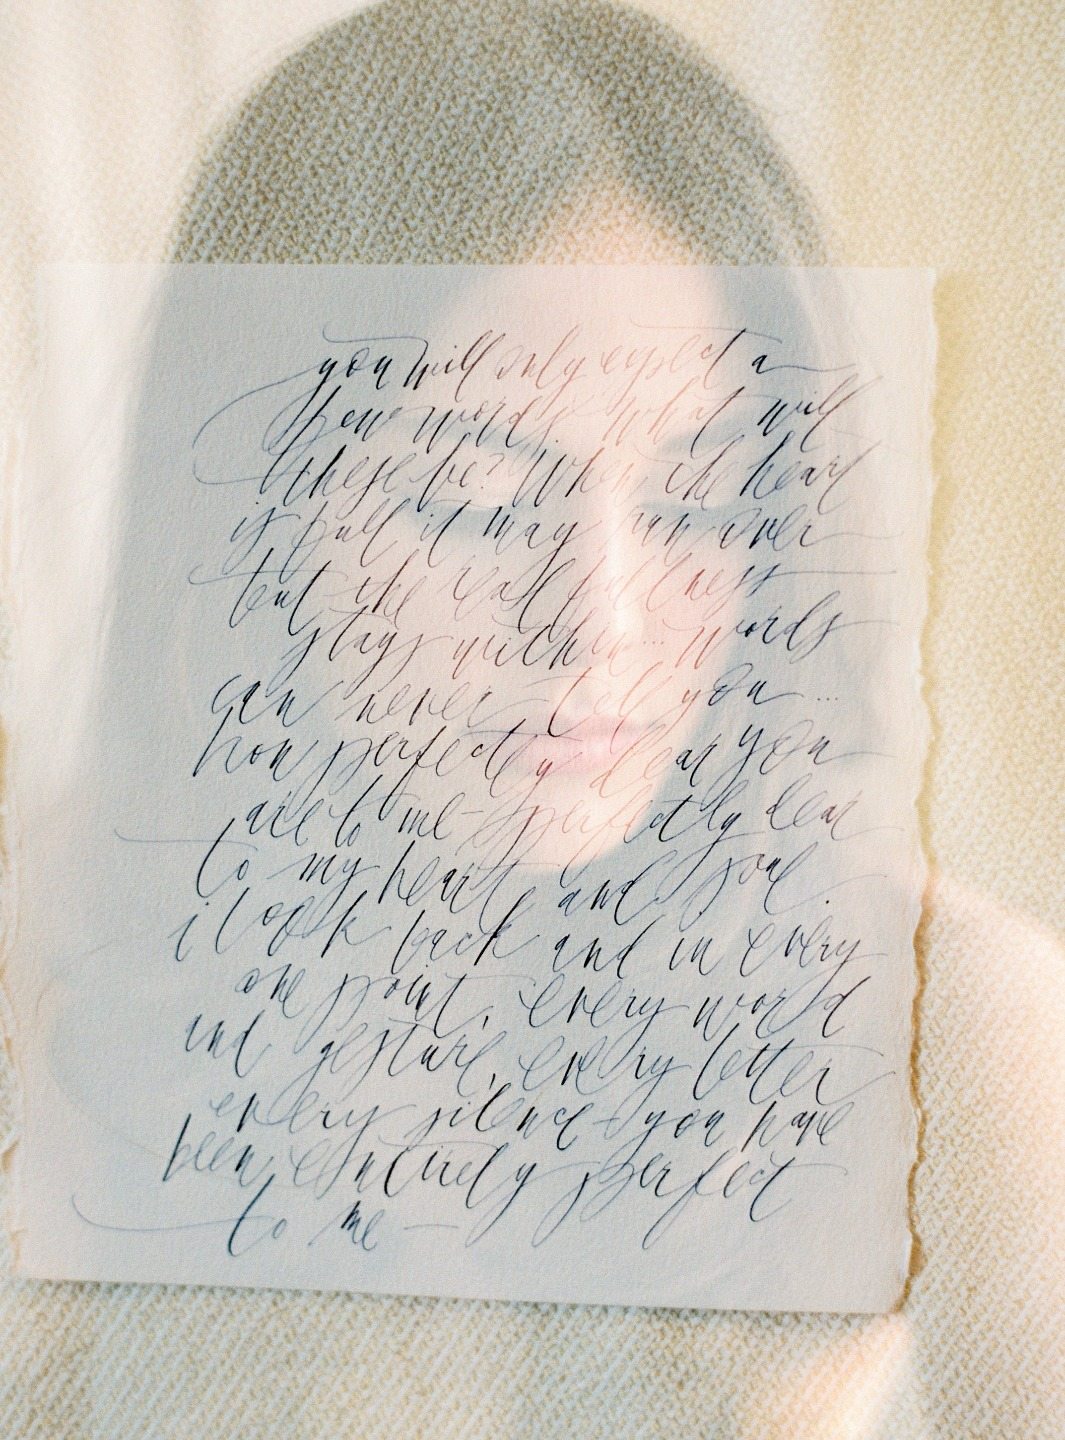 you will only expect a
few words. what will
these be? When the heart
is full it may run over
but the real fullness
stays within... words
can never tell you...
how perfectly dear you
are to me - perfectly dear
to my heart and soul.
i look back and in every
one point, every word
and gesture, every letter
every silence - you have
been entirely perfect
to me -